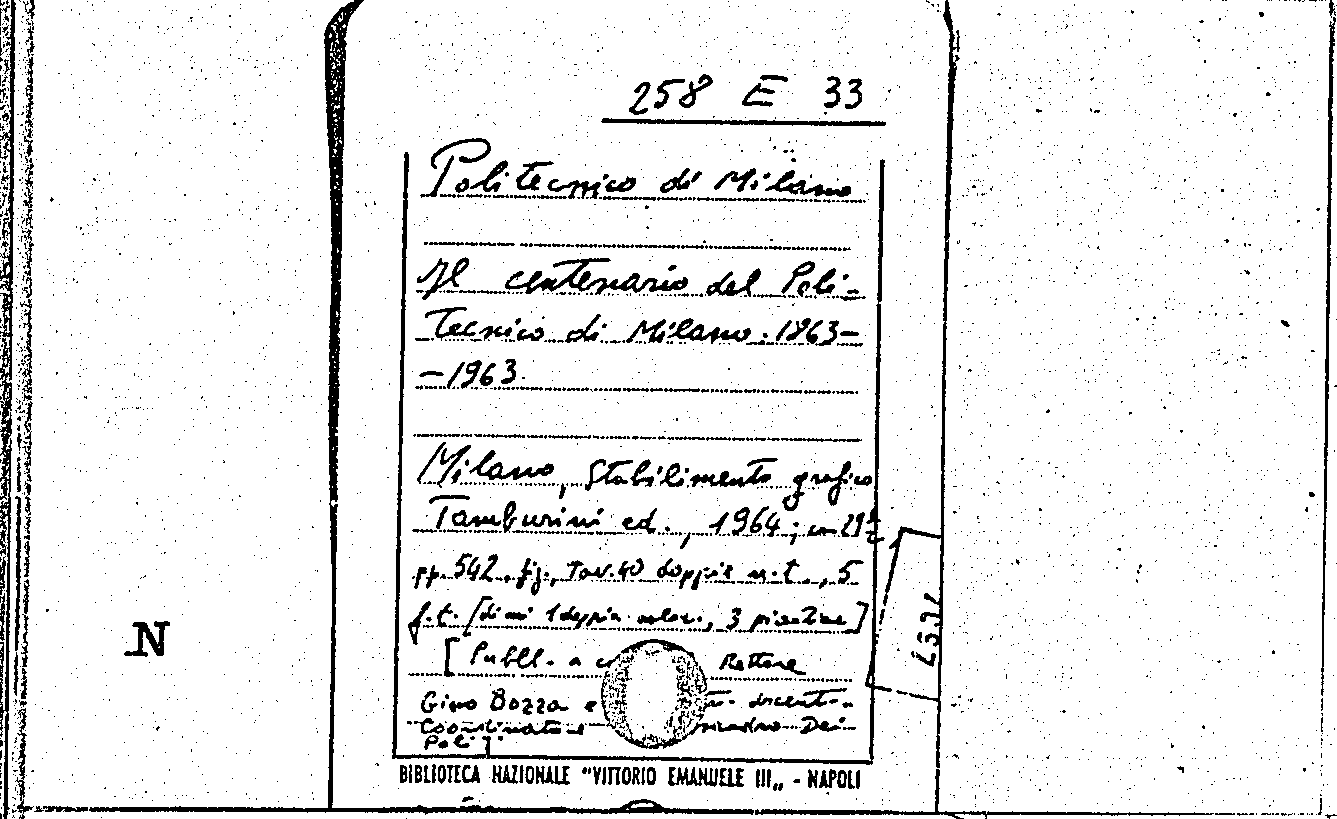 258 E 33
Politecnico di Milano
Il centenario del Poli-
tecnico di Milano. 1863-
-1963.
Milano, Stabilimento grafico
Tamburini ed., 1964; cm 29½
pp. 542, fig., tav. 40 doppie n.t., 5
f.t. [di cui 1 doppia color., 3 piantine]
[Pubbl. a c Rettore
Gino Bozza e docenti.
Coordinatore Dei
Poli].
BIBLIOTECA NAZIONALE "VITTORIO EMANUELE III„ - NAPOLI
N